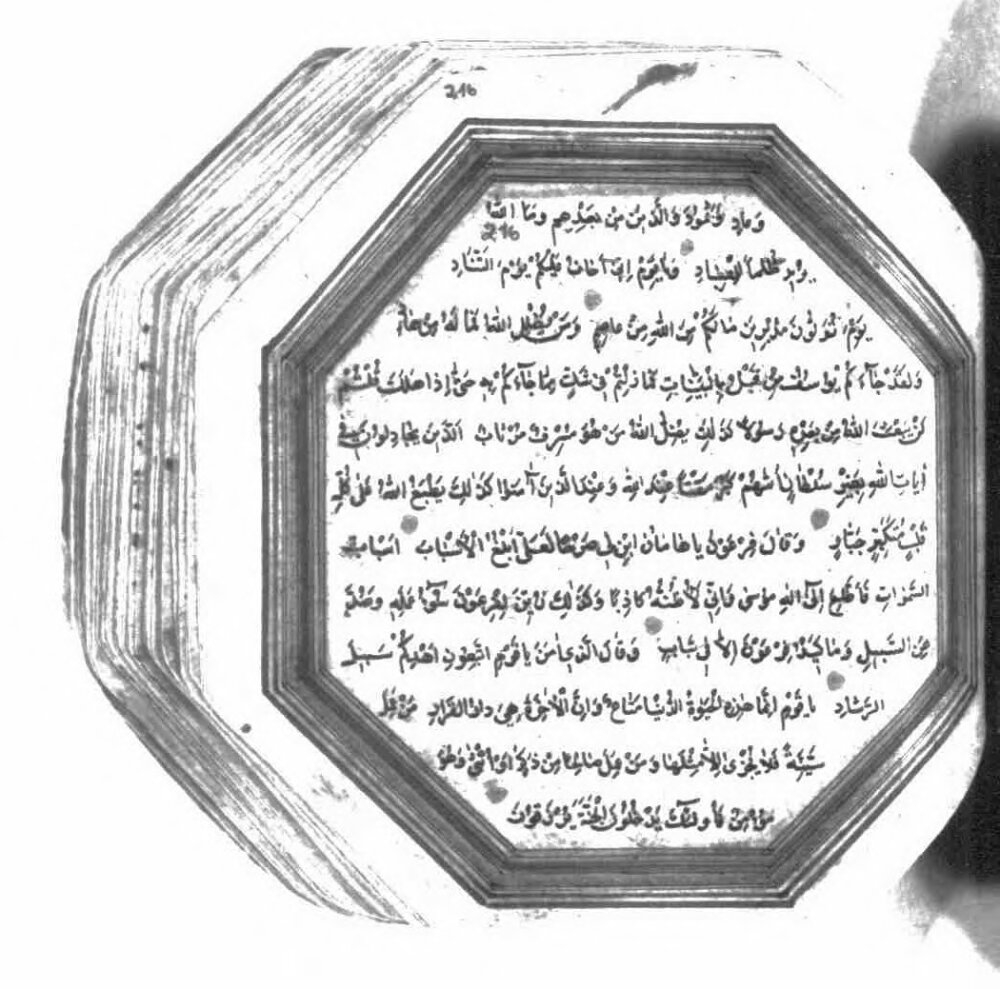 216
وَعادٍ وَثَمُودَ وَالَّذِينَ مِنْ بَعْدِهِمْ وَمَا اللهُ
216
يُرِيدُ ظُلْمًا لِلْعِبَادِ وَيَاقَوْمِ إِنِّى أَخَافُ عَلَيْكُمْ يَوْمَ التَّنَادِ
يَوْمَ تُوَلُّونَ مُدْبِرِينَ مَا لَكُمْ مِنَ اللهِ مِنْ عَاصِمٍ وَمَنْ يُضْلِلِ اللهُ فَمَا لَهُ مِنْ هَادٍ
وَلَقَدْ جَآءَكُمْ يُوسُفُ مِنْ قَبْلُ بِالْبَيِّنَاتِ فَمَا زِلْتُمْ فِى شَكٍّ مِمَّا جَآءَكُمْ بِهِ حَتَّى إِذَا هَلَكَ قُلْتُمْ
لَنْ يَبْعَثَ اللهُ مِنْ بَعْدِهِ رَسُولًا كَذَلِكَ يُضِلُّ اللهُ مَنْ هُوَ مُسْرِفٌ مُرْتَابٌ الَّذِينَ يُجَادِلُونَ فِى
أيَاتِ اللهِ بِغَيْرِ سُلْطَانٍ أَتَيهُمْ كَبُرَ مَقْتًا عِنْدَ اللهِ وَعِنْدَ الَّذِينَ آمَنُوا كَذَلِكَ يَطْبَعُ اللهُ عَلَى كُلِّ
قَلْبِ مُتَكَبِّرٍ جَبَّارٍ وَقَالَ فِرْعَوْنُ يَا هَامَانُ ابْنِ لِى صَرْحًا لَعَلِّى أَبْلُغُ الْأَسْبَابَ أَسْبَابَ
السَّمٰوَاتِ فَأَطَّلِعَ إِلَى اللهِ مُوسَى وَإِنِّى لَأَظُنُّهُ كَاذِبًا وَكَذَلِكَ زُيِّنَ لِفِرْعَوْنَ سُوءُ عَمَلِهِ وَصُدَّ
عَنِ السَّبِيلِ وَمَا كَيْدُ فِرْعَوْنَ إِلَّا فِى تَبَابٍ وَقَالَ الَّذِى اٰمَنَ يَا قَوْمِ اتَّبِعُونِ أَهْدِكُمْ سَبِيلَ
الرَّشَادِ يَا قَوْمِ إِنَّمَا هٰذِهِ الْحَيٰوةُ الدُّنْيَا مَتَاعٌ وَإِنَّ الْاٰخِرَةَ هِىَ دَارُ الْقَرَارِ مَنْ عَمِلَ
سَيِّئَةً فَلَا يُجْزَى إِلَّا مِثْلَهَا وَمَنْ عَمِلَ صَالِحًا مِنْ ذَكَرٍ أَوْ أُنْثَى وَهُوَ
مُؤْمِنٌ فَأُولَئِكَ يَدْخُلُونَ الْجَنَّةَ يُرْزَقُونَ